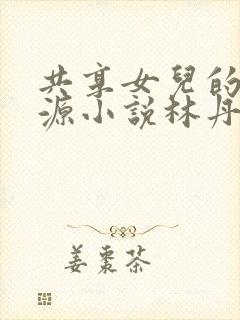 共享女兒的
源小說林丹
姜棗茶